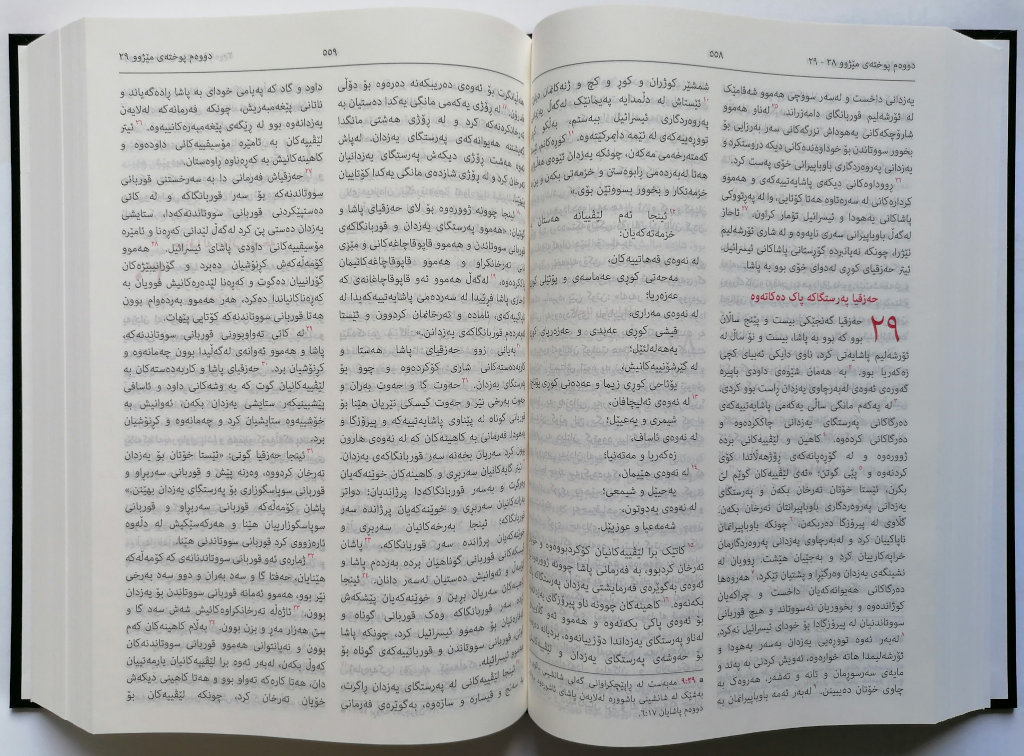 دووەم پوختەی مێژوو ٢٨ - ٢٩
٥٥٨
یەزدانی داخست و لەسەر سووچی هەموو شەقامێک
لە ئۆرشەلیم قوربانگای دامەزراند. ٢٥لەناو هەموو
شارۆچکەکانی یەهوداش نزرگەی سەر بەرزایی بۆ
بخوور سووتاندن بۆ خوداوەندەکانی دیکە دروستکرد و
یەزدانی پەروەردگاری باوباپیرانی خۆی پەست کرد.
٢٦ڕووداوەکانی دیکەی پاشایەتییەکەی و هەموو
کردارەکانی لە سەرەتاوە هەتا کۆتایی، وا لە پەڕتووکی
پاشاکانی یەهودا و ئیسرائیل تۆمار کراون. ٢٧ئاحاز
لەگەڵ باوباپیرانی سەری نایەوە و لە شاری ئۆرشەلیم
نێژرا، چونکە نەیانبردە گۆڕستانی پاشاکانی ئیسرائیل.
ئیتر حەزقیای کوڕی لەدوای خۆی بوو بە پاشا.
حەزقیا پەرستگاکە پاک دەکاتەوە
٢٩ حەزقیا گەنجێکی بیست و پێنج ساڵان
بوو کە بوو بە پاشا، بیست و نۆ ساڵ لە
ئۆرشەلیم پاشایەتی کرد، ناوی دایکی ئەبیای کچی
زەکەریا بوو. ٢بە هەمان شێوەی داودی باپیرە
گەورەی ئەوەی لەبەرچاوی یەزدان ڕاست بوو کردی.
٣لە یەکەم مانگی ساڵی یەکەمی پاشایەتییەکەی
دەرگاکانی پەرستگای یەزدانی چاککردەوە و
دەرگاکانی کردەوە. ٤کاهین و لێڤییەکانی بردە
ژوورەوە و لە گۆڕەپانەکەی ڕۆژهەڵاتدا کۆی
کردنەوە و ٥پێی گوتن: «ئەی لێڤییەکان گوێم لێ
بگرن، ئێستا خۆتان تەرخان بکەن و پەرستگای
یەزدانی پەروەردگاری باوباپیرانتان تەرخان بکەن.
گڵاوی لە پیرۆزگا دەربکەن، ٦چونکە باوباپیرانمان
ناپاکییان کرد و لەبەرچاوی یەزدانی پەروەردگارمان
خراپەکارییان کرد و بەجێیان هێشت. ڕوویان لە
نشینگەی یەزدان وەرگێڕا و پشتیان تێکرد. ٧هەروەها
دەرگاکانی هەیوانەکەیان داخست و چراکەیان
کوژاندەوە و بخووریان نەسووتاند و هیچ قوربانی
سووتاندنیان لە پیرۆزگادا بۆ خودای ئیسرائیل نەکرد.
٨لەبەر ئەوە توورەیی یەزدان بەسەر یەهودا و
ئۆرشەلیمدا هاتە خوارەوە، ئەویش کردنی بە پەند و
مایەی سەرسوڕمان و تانە و تەشەر، هەروەک بە
چاوی خۆتان دەیبینن. ٩لەبەر ئەمە باوباپیرانمان بە
شمشێر کوژران و کوڕ و کچ و ژنەکانمان
١٠ئێستاش لە دڵمدایە پەیمانێک لەگەڵ
پەروەردگاری ئیسرائیل ببەستم، بەڵکو
توورەییەکەی لە ئێمە دامرکێتەوە. ١١کوڕەکانم
کەمتەرخەمی مەکەن، چونکە یەزدان ئێوەی
هەتا لەبەردەمی ڕابوەستن و خزمەتی بکەن و
خزمەتکار و بخوور پسووتێن بۆی.»
١٢ئینجا ئەم لێڤییانە هەستان
خزمەتەکەیان:
لە نەوەی قەهاتییەکان،
مەحەتی کوڕی عەماسەی و یۆئێلی
عەزەریا؛
لە نەوەی مەراری،
قیشی کوڕی عەبدی و عەزەریای
یەهەلەلئێل؛
لە گێرشۆنییەکانیش،
یۆئاحی کوڕی زیما و عەدەنی کوڕی یۆئاح
١٣لە نەوەی ئەلیچافان،
شیمری و یەعیێل؛
لە نەوەی ئاساف،
زەکەریا و مەتەنیا؛
١٤لە نەوەی هێیمان،
یەحیێل و شیمعی؛
لە نەوەی یەدوتون،
شەمەعیا و عوزیێل.
١٥کاتێک برا لێڤییەکانیان کۆکردبووەوە و خۆیان
تەرخان کردبوو، بە فەرمانی پاشا چوونە ژوورەوە
ئەوەی بەگوێرەی فەرمایشتی یەزدان پەرستگای
بکەنەوە. ١٦کاهینەکان چوونە ناو پیرۆزگای یەزدان
بۆ ئەوەی پاکی بکەنەوە و هەموو ئەو گڵاوییەی
لەناو پەرستگای یەزداندا دۆزییانەوە، بردیانە دەرەوە
بۆ حەوشەی پەرستگای یەزدان و لێڤییەکان
٩:٢٩ مەبەست لە ڕاپێچکراوانی گەلی شانشینی
بەشێک لە شانشینی باشوورە لەلایەن پاشای ئاشوورەوە
دووەم پاشایان ٦:١٧
٥٥٩
دووەم پوختەی مێژوو ٢٩
هەڵیانگرت بۆ ئەوەی دەریبکەنە دەرەوە بۆ دۆڵی
١٧لە ڕۆژی یەکەمی مانگی یەکدا دەستیان بە
تەرخانکردنەکە کرد و لە ڕۆژی هەشتی مانگدا
گەیشتنە هەیوانەکەی پەرستگای یەزدان. لەپاش
هەشت ڕۆژی دیکەش پەرستگای یەزدانیان
تەرخان کرد و لە ڕۆژی شازدەی مانگی یەکدا کۆتاییان
١٨ئینجا چوونە ژوورەوە بۆ لای حەزقیای پاشا و
گوتیان: «هەموو پەرستگای یەزدان و قوربانگاکەی
قوربانی سووتاندن و هەموو قاپوقاچاغەکانی و مێزی
نانی تەرخانکراو و هەموو قاپوقاچاغەکانیمان
پاککردەوە، ١٩لەگەڵ هەموو ئەو قاپوقاچاغانەی کە
ئاحازی پاشا فڕێیدا لە سەردەمی پاشایەتییەکەیدا لە
ناپاکییەکەی، ئامادە و تەرخانمان کردوون و ئێستا
لەبەردەم قوربانگاکەی یەزدانن.»
٢٠بەیانی زوو حەزقیای پاشا هەستا و
کاربەدەستەکانی شاری کۆکردەوە و چوو بۆ
پەرستگای یەزدان. ٢١حەوت گا و حەوت بەران و
حەوت بەرخی نێر و حەوت گیسکی نێریان هێنا بۆ
قوربانی گوناه لە پێناوی پاشایەتییەکە و پیرۆزگا و
یەهودا. فەرمانی بە کاهینەکان کە لە نەوەی هارون
بوون کرد سەریان بخەنە سەر قوربانگاکەی یەزدان.
٢٢ئیتر گایەکانیان سەربڕی و کاهینەکان خوێنەکەیان
وەرگرت و بەسەر قوربانگاکەدا پرژاندیان؛ دواتر
بەرانەکانیان سەربڕی و خوێنەکەیان پرژاندە سەر
قوربانگاکە؛ ئینجا بەرخەکانیان سەربڕی و
خوێنەکەیان پرژاندە سەر قوربانگاکە. ٢٣پاشان
گیسکەکانی قوربانی گوناهیان بردە بەردەم پاشا و
کۆمەڵ و ئەوانیش دەستیان لەسەر دانان. ٢٤ئینجا
کاهینەکان سەریان بڕین و خوێنەکەیان پێشکەش
کرد بەسەر قوربانگاکە وەک قوربانی گوناه و
کەفارەتیان بۆ هەموو ئیسرائیل کرد، چونکە پاشا
فەرمانی قوربانی سووتاندن و قوربانییەکەی گوناه بۆ
هەموو ئیسرائیلە.
٢٥ئینجا لێڤییەکانی لە پەرستگای یەزدان ڕاگرت،
بە سەنج و قیسارە و سازەوە، بەگوێرەی فەرمانی
داود و گاد کە پەیامی خودای بە پاشا ڕادەگەیاند و
ناتانی پێغەمبەریش، چونکە فەرمانەکە لەلایەن
یەزدانەوە بوو لە ڕێگەی پێغەمبەرەکانییەوە. ٢٦ئیتر
لێڤییەکان بە ئامێرە مۆسیقییەکانی داودەوە و
کاهینەکانیش بە کەڕەناوە ڕاوەستان.
٢٧حەزقیاش فەرمانی دا بە سەرخستنی قوربانی
سووتاندنەکە بۆ سەر قوربانگاکە و لە کاتی
دەستپێکردنی قوربانی سووتاندنەکەدا، ستایشی
یەزدان دەستی پێ کرد لەگەڵ لێدانی کەڕەنا و ئامێرە
مۆسیقییەکانی داودی پاشای ئیسرائیل. ٢٨هەموو
کۆمەڵەکەش کڕنۆشیان دەبرد و گۆرانیبێژەکان
گۆرانییان دەگوت و کەڕەنا لێدەرەکانیش فوویان بە
کەڕەناکانیاندا دەکرد، هەر هەموو بەردەوام بوون
هەتا قوربانی سووتاندنەکە کۆتایی پێهات.
٢٩لە کاتی تەواوبوونی قوربانی سووتاندنەکە،
پاشا و هەموو ئەوانەی لەگەڵیدا بوون چەمانەوە و
کڕنۆشیان برد. ٣٠حەزقیای پاشا و کاربەدەستەکان بە
لێڤییەکانیان گوت کە بە وشەکانی داود و ئاسافی
پێشبینیکەر ستایشی یەزدان بکەن، ئەوانیش بە
خۆشییەوە ستایشیان کرد و چەمانەوە و کڕنۆشیان
برد.
٣١ئینجا حەزقیا گوتی: «ئێستا خۆتان بۆ یەزدان
تەرخان کردووە، وەرنە پێش و قوربانی سەربڕاو و
قوربانی سوپاسگوزاری بۆ پەرستگای یەزدان بهێنن.»
پاشان کۆمەڵەکە قوربانی سەربڕاو و قوربانی
سوپاسگوزارییان هێنا و هەرکەسێکیش لە دڵەوە
ئارەزووی کرد قوربانی سووتاندنی هێنا.
٣٢ژمارەی ئەو قوربانی سووتاندنانەی کە کۆمەڵەکە
هێنایان، حەفتا گا و سەد بەران و دوو سەد بەرخی
نێر بوو، هەموو ئەمانە قوربانی سووتاندن بۆ یەزدان
بوون. ٣٣ئاژەڵە تەرخانکراوەکانیش شەش سەد گا و
سێ هەزار مەڕ و بزن بوون. ٣٤بەڵام کاهینەکان کەم
بوون و نەیانتوانی هەموو قوربانی سووتاندنەکان
کەوڵ بکەن، لەبەر ئەوە برا لێڤییەکانیان یارمەتییان
دان، هەتا کارەکە تەواو بوو و هەتا کاهینی دیکەش
خۆیان تەرخان کرد، چونکە لێڤییەکان بۆ